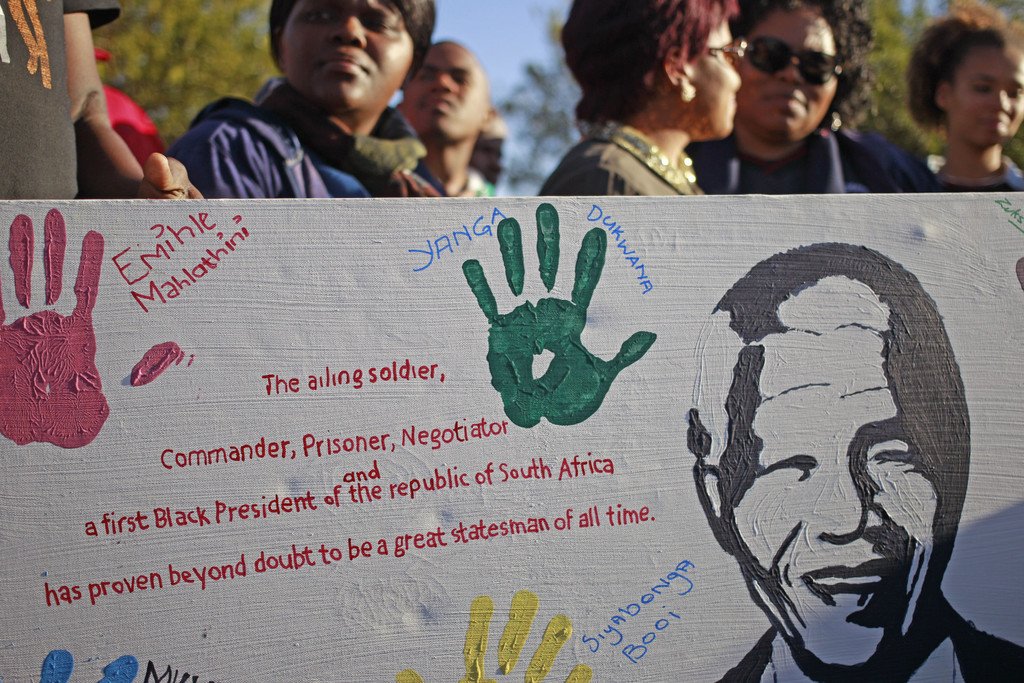 Emihle
Mahlathini
YANGA
DUKWANA
The ailing soldier,
Commander, Prisoner, Negotiator
and
a first Black President of the republic of South Africa
has proven beyond doubt to be a great statesman of all time.
Siyabonga
Booi